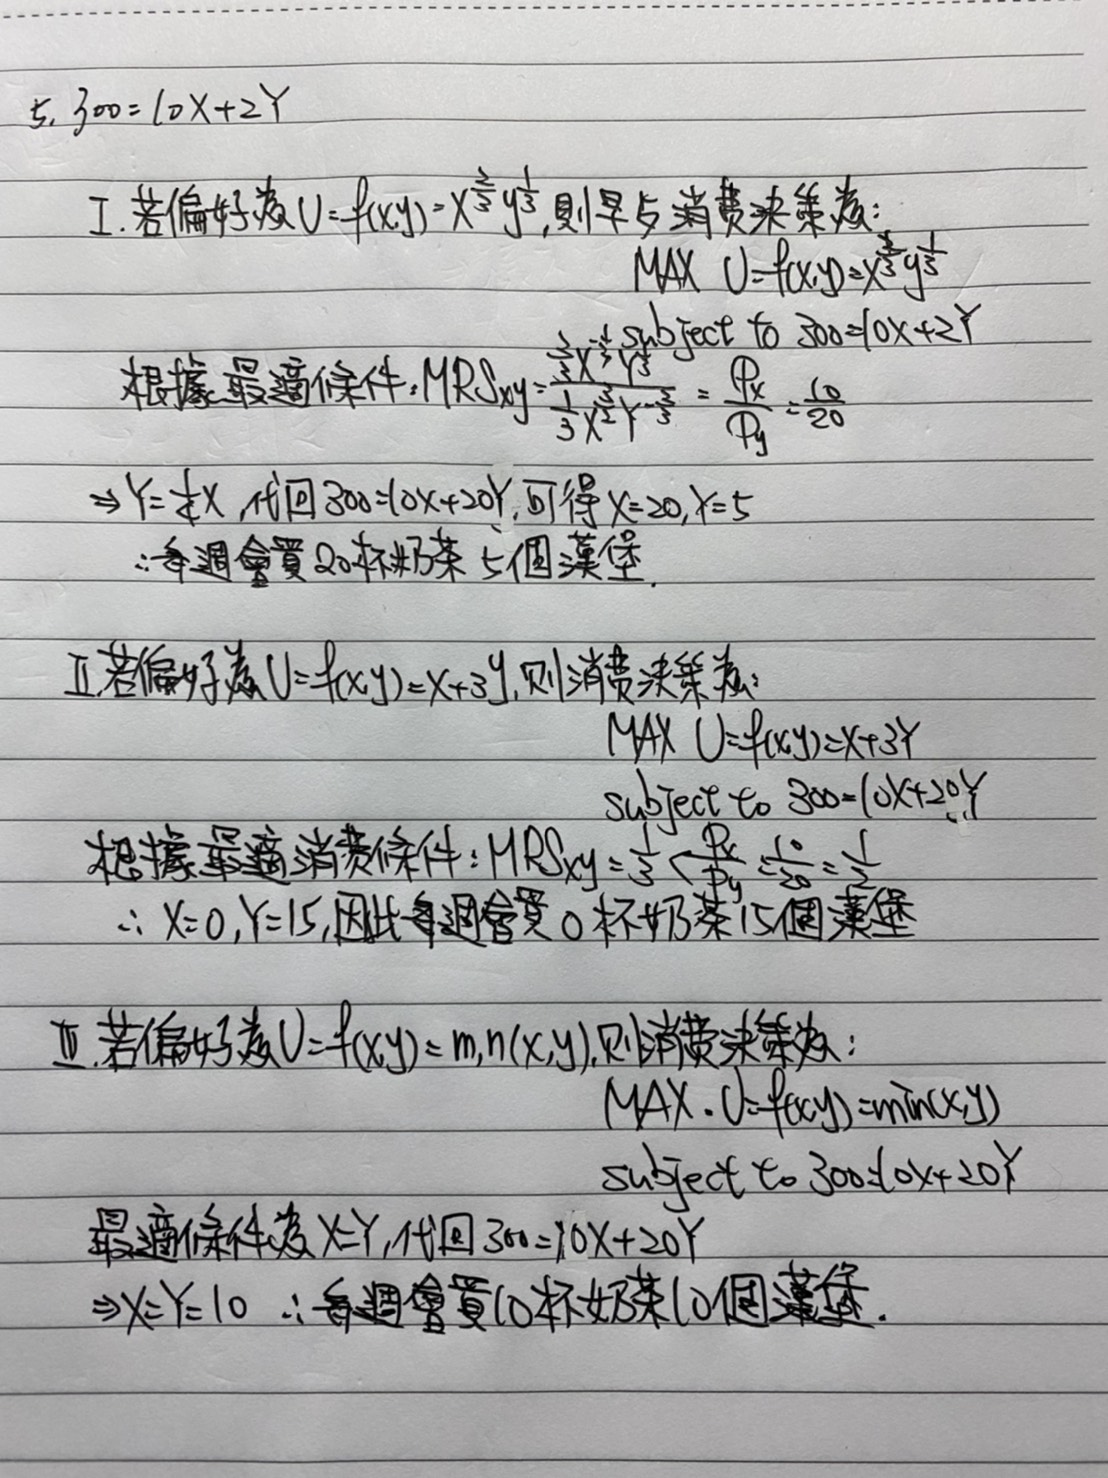 5. 300=10X+2Y
I. 若偏好為U=f(x,y)=X^{2/3}y^{1/3},則早与消費決策為:
MAX U=f(x,y)=X^{2/3}y^{1/3}
subject to 300=10X+2Y
根據最適條件:MRSxy= = Px/Py = 10/20
⇒Y=X,代回300=10X+20Y,可得X=20,Y=5
∴每週會買20杯奶茶5個漢堡.
II.若偏好為U=f(x,y)=X+3y,則消費決策為:
MAX U=f(x,y)=X+3Y
subject to 300=10X+20Y
根據最適消費條件:MRSxy=1/3<Px/Py=10/20=1/2
∴X=0,Y=15,因此每週會買0杯奶茶15個漢堡
III.若偏好為U=f(x,y)=min(x,y),則消費決策為:
MAX. U=f(x,y)=min(x,y)
subject to 300=10X+20Y
最適條件為X=Y,代回300=10X+20Y
⇒X=Y=10 ∴每週會買10杯奶茶10個漢堡.